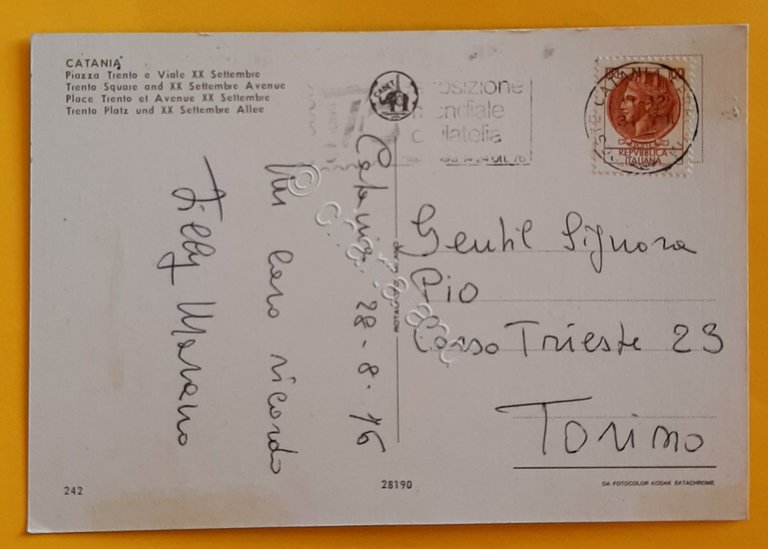 CATANIA
Piazza Trento e Viale XX Settembre
Trento Square and XX Settembre Avenue
Place Trento et Avenue XX Settembre
Trento Platz und XX Settembre Allee
esposizione
mondiale
filatelia
100
REPVBBLICA
ITALIANA
CATANIA
Catania 28-8-76
Un caro ricordo
Gentil Signora
Pio
Corso Trieste 23
Torino
242
28190
DA FOTOCOLOR KODAK EKTACHROME